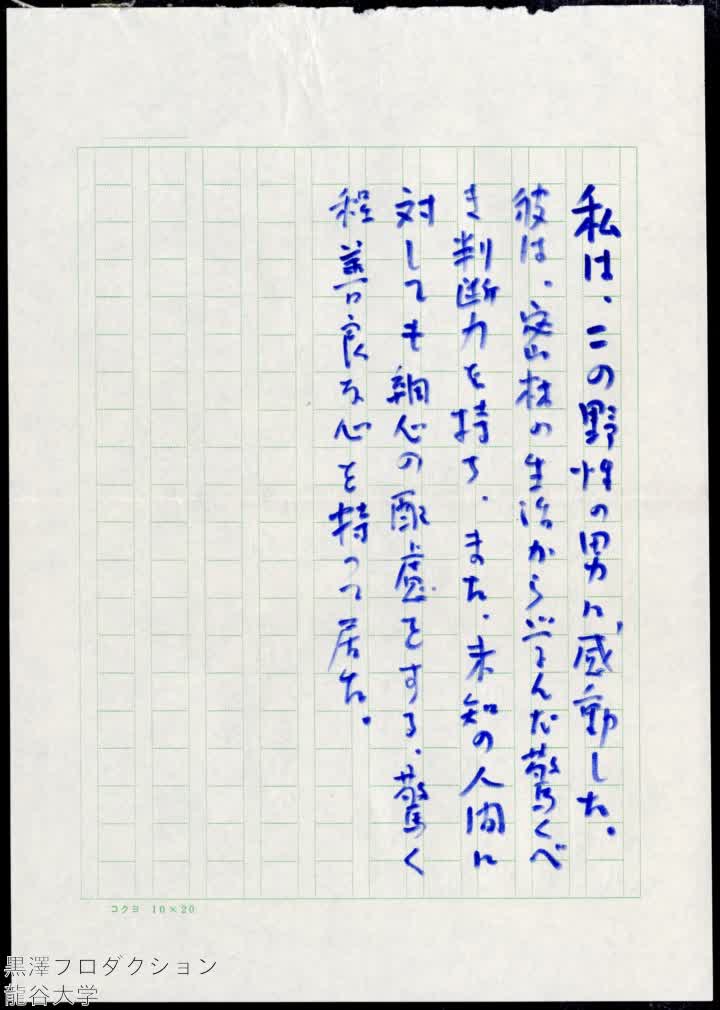 私は、この野性の男に、感動した。
彼は、密林の生活から学んだ驚くべ
き判断力を持ち、また、未知の人間に
対しても細心の配慮をする、驚く
程善良な心を持って居た。
コクヨ 10×20
黒澤プロダクション
龍谷大学